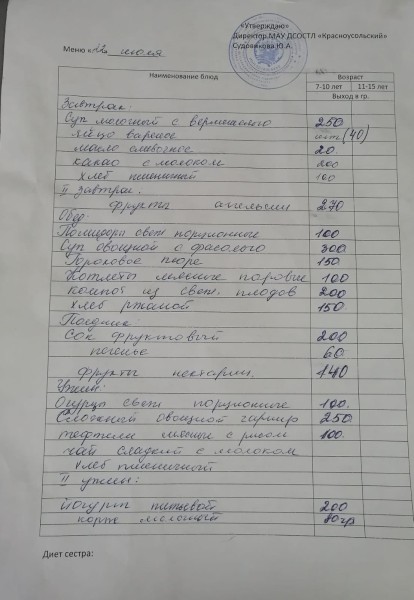 «Утверждаю»
Директор МАУ ДСОСТЛ «Красноусольский»
Судовикова Ю.А.
Меню « » июля
Наименование блюд Возраст
7-10 лет 11-15 лет
Выход в гр.
Завтрак:
Суп молочной с вермишелью 250
яйцо вареное (40)
масло сливочное 20
какао с молоком 200
хлеб пшеничный 100
II завтрак.
фрукты апельсин 270
Обед:
Помидоры свеж порционные 100
Суп овощной с фасолью 300
Гороховое пюре 150
Котлеты мясные паровые 100
компот из свеж. плодов 200
хлеб ржаной 150
Полдник
Сок фруктовый 200
печенье 60
фрукты нектарин. 140
Ужин:
Огурцы свеж порционные 100
Сложный овощной гарнир 250
тефтели мясные с рисом 100
чай сладкий с молоком
хлеб пшеничный
II ужин:
йогурт питьевой 200
молотый 80гр
Диет сестра: